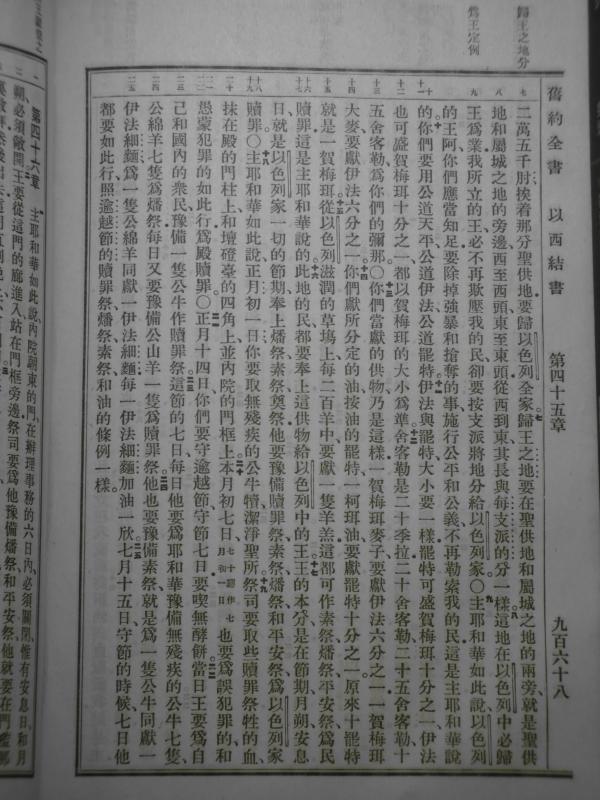 歸王之地分
為王定例
舊約全書 以西結書 第四十五章 九百六十八
二萬五千肘挨着那分聖供地要歸以色列全家歸王之地要在聖供地和屬城之地的兩旁就是聖供
地和屬城之地的旁邊西至西頭東至東頭從西到東其長與每支派的分一樣這地在以色列中必歸
王為業我所立的王必不再欺壓我的民卻要按支派將地分給以色列家〇主耶和華如此說以色列
的王阿你們應當知足要除掉強暴和搶奪的事施行公平和公義不再勒索我的民這是主耶和華說
的你們要用公道天平公道伊法公道罷特伊法與罷特大小要一樣罷特可盛賀梅珥十分之一伊法
也可盛賀梅珥十分之一都以賀梅珥的大小為準舍客勒是二十季拉二十舍客勒二十五舍客勒十
五舍客勒為你們的彌那〇你們當獻的供物乃是這樣一賀梅珥麥子要獻伊法六分之一一賀梅珥
大麥要獻伊法六分之一你們獻所分定的油按油的罷特一柯珥油要獻罷特十分之一原來十罷特
就是一賀梅珥從以色列滋潤的草場上每二百羊中要獻一隻羊羔這都可作素祭燔祭平安祭為民
贖罪這是主耶和華說的此地的民都要奉上這供物給以色列中的王王的本分是在節期月朔安息
日就是以色列家一切的節期奉上燔祭素祭奠祭他要豫備贖罪祭素祭燔祭和平安祭為以色列家
贖罪〇主耶和華如此說正月初一日你要取無殘疾的公牛犢潔淨聖所祭司要取些贖罪祭牲的血
抹在殿的門柱上和壇磴臺的四角上並內院的門框上本月初七日七十譯作七月初一日也要為誤犯罪的和
愚蒙犯罪的如此行為殿贖罪〇正月十四日你們要守逾越節守節七日要喫無酵餅當日王要為自
己和國內的衆民豫備一隻公牛作贖罪祭這節的七日每日他要為耶和華豫備無殘疾的公牛七隻
公綿羊七隻為燔祭每日又要豫備公山羊一隻為贖罪祭他也要豫備素祭就是為一隻公牛同獻一
伊法細麵為一隻公綿羊同獻一伊法細麵每一伊法細麵加油一欣七月十五日守節的時候七日他
都要如此行照逾越節的贖罪祭燔祭素祭和油的條例一樣
第四十六章 主耶和華如此說內院朝東的門在辦理事務的六日內必須關閉惟有安息日和月
朔必須敞開王要從這門的廊進入站在門框旁邊祭司要為他豫備燔祭和平安祭他就要在門檻那